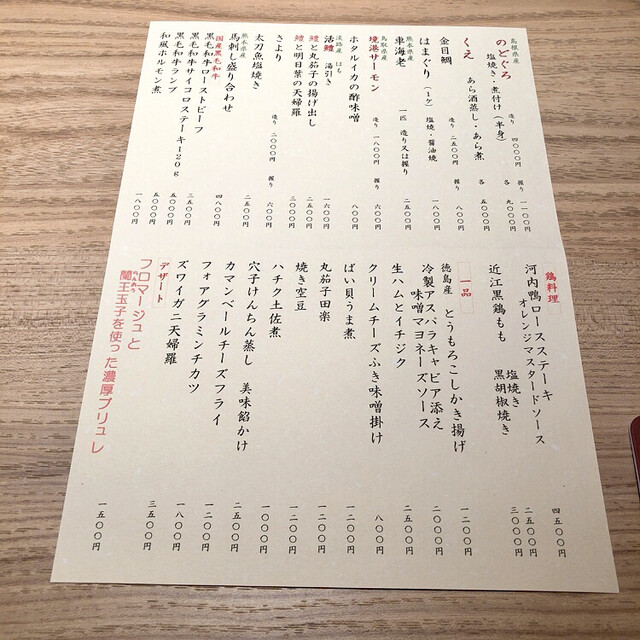 島根県産
のどぐろ 造り 四〇〇〇円 握り 一一〇〇円
塩焼き・煮付け(半身) 各 九〇〇〇円
くえ
あら酒蒸し・あら煮 各 五〇〇〇円
金目鯛 造り 二五〇〇円 握り 八〇〇円
はまぐり(1ヶ) 塩焼・醤油焼 一八〇〇円
熊本県産
車海老 一匹 造り又は握り 二五〇〇円
鳥取県産
境港サーモン 造り 一八〇〇円 握り 六〇〇円
ホタルイカの酢味噌 八〇〇円
淡路産 はも
活鱧 湯引き 一六〇〇円
鱧と丸茄子の揚げ出し 二五〇〇円
鱧と明日葉の天婦羅 三〇〇〇円
さより 造り 二〇〇〇円 握り 六〇〇円
太刀魚塩焼き 二五〇〇円
熊本県産
馬刺し盛り合わせ 四八〇〇円
国産黒毛和牛
黒毛和牛ローストビーフ 三五〇〇円
黒毛和牛サイコロステーキ120g 五〇〇〇円
黒毛和牛ランプ 五〇〇〇円
和風ホルモン煮 一八〇〇円
鶏料理
河内鴨ロースステーキ 四五〇〇円
オレンジマスタードソース
近江黒鶏もも 塩焼き 二五〇〇円
黒胡椒焼き 三〇〇〇円
一品
徳島産 とうもろこしかき揚げ 一二〇〇円
冷製アスパラキャビア添え 二〇〇〇円
味噌マヨネーズソース
生ハムとイチジク 二五〇〇円
クリームチーズふき味噌掛け 八〇〇円
ばい貝うま煮 一二〇〇円
丸茄子田楽 一二〇〇円
焼き空豆 一二〇〇円
ハチク土佐煮 一〇〇〇円
穴子けんちん蒸し 美味餡かけ 二五〇〇円
カマンベールチーズフライ 一二〇〇円
フォアグラミンチカツ 一八〇〇円
ズワイガニ天婦羅 三五〇〇円
デザート
フロマージュと
らんおう
蘭王玉子を使った濃厚ブリュレ 一五〇〇円